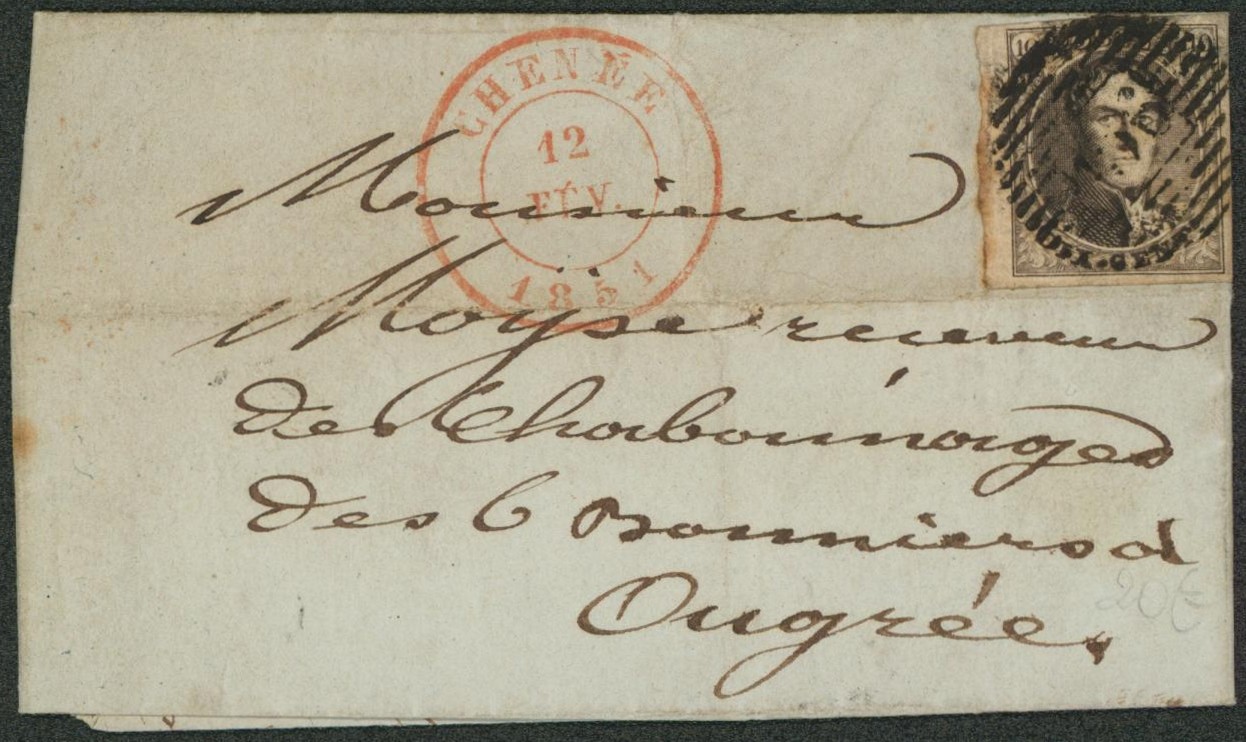 CHENÉE
12
FÉV.
1851
10
Monsieur
Moÿse receveur
des Charbonnages
des 6 Bonniers à
Ougrée.
20€